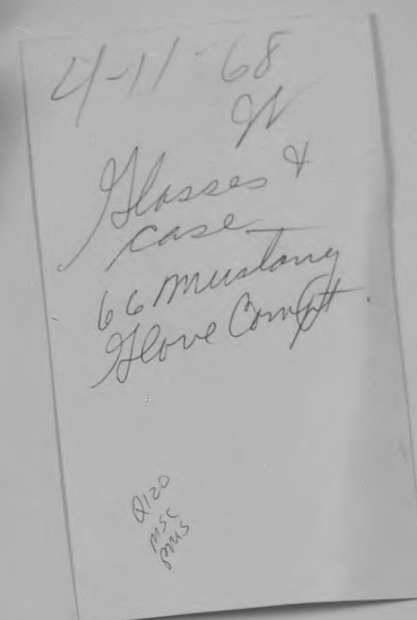 4-11-68
W
Glasses &
case
66 Mustang
Glove Compt.
Q120
MSC
PMS